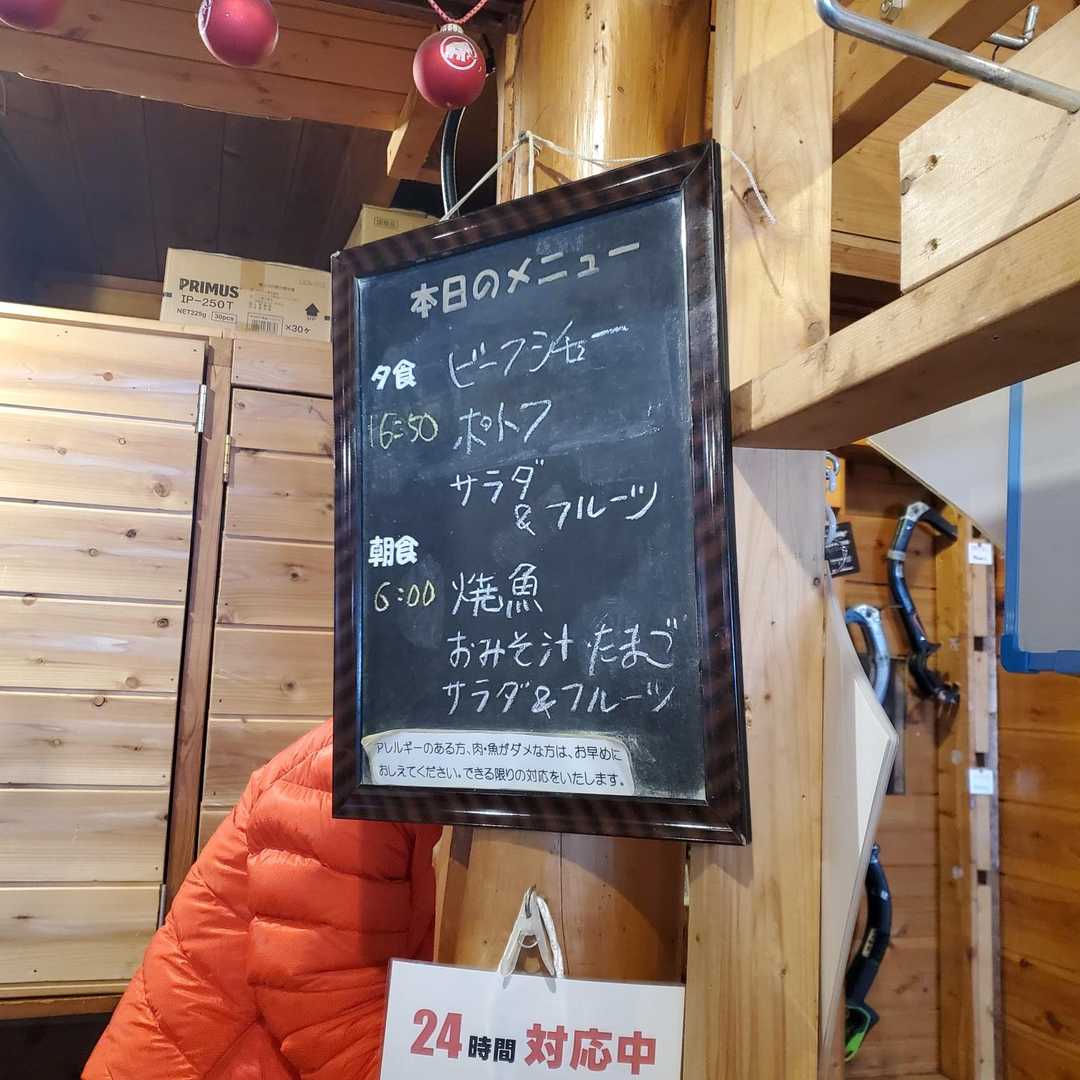 本日のメニュー
夕食 ビーフシチュー
16:50 ポトフ
サラダ
& フルーツ
朝食
6:00 焼魚
おみそ汁 たまご
サラダ&フルーツ
アレルギーのある方、肉・魚がダメな方は、お早めに
おしえてください。できる限りの対応をいたします。
PRIMUS
IP-250T
NET225g 30pcs
×30ヶ
24時間 対応中